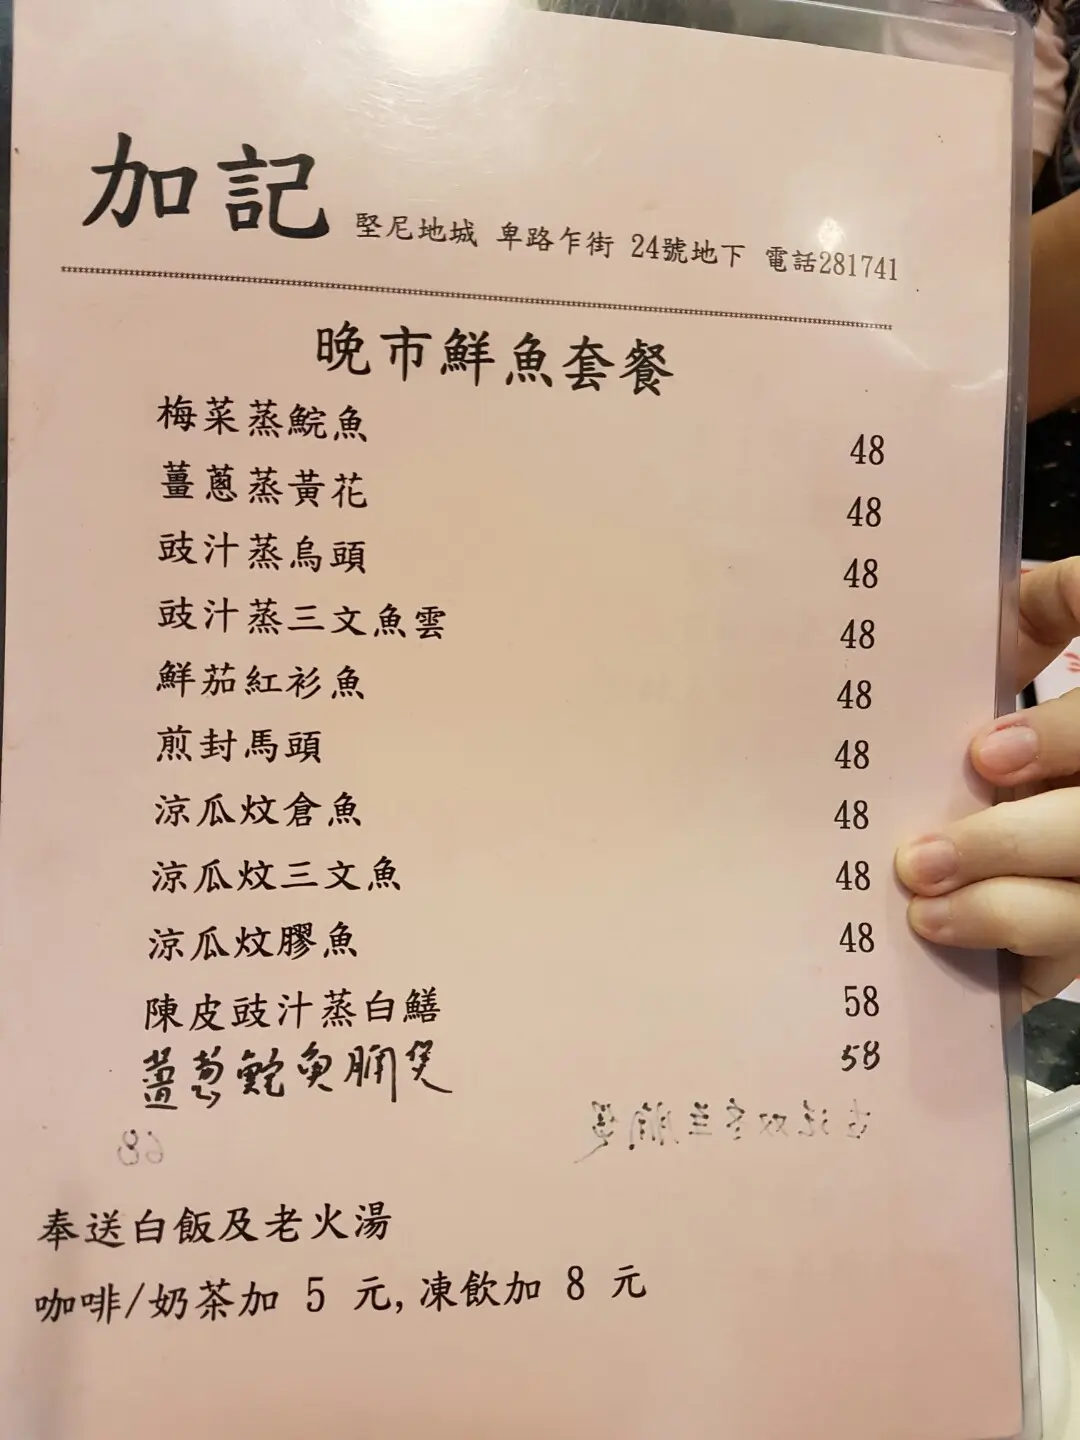 加記 堅尼地城 卑路乍街 24號地下 電話281741
晚市鮮魚套餐
梅菜蒸鯇魚 48
薑蔥蒸黃花 48
豉汁蒸烏頭 48
豉汁蒸三文魚雲 48
鮮茄紅衫魚 48
煎封馬頭 48
涼瓜炆倉魚 48
涼瓜炆三文魚 48
涼瓜炆膠魚 48
陳皮豉汁蒸白鱔 58
薑葱鮑魚腩煲 58
68
奉送白飯及老火湯
咖啡/奶茶加 5 元,凍飲加 8 元